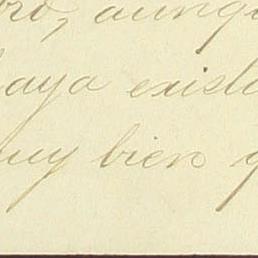 aunqu
haya exist
muy bien q